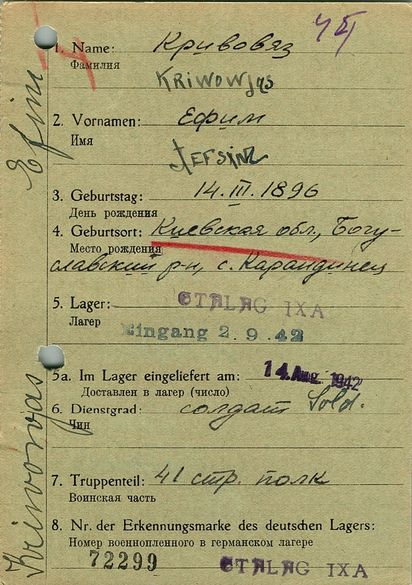 1. Name: Кривовяз
Фамилия
KRIWOWJAS
2. Vornamen: Ефим
Имя
3. Geburtstag: 14.III.1896
День рождения
4. Geburtsort: Киевская обл., Богу-
Место рождения
славский р-н, с. Карандинец
5. Lager: STALAG IXA
Лагерь
Eingang 2.9.42
5a. Im Lager eingeliefert am: 14. Aug. 1942
Доставлен в лагерь (число)
6. Dienstgrad: солдат Sold.
Чин
7. Truppenteil: 41 стр. полк
Воинская часть
8. Nr. der Erkennungsmarke des deutschen Lagers:
Номер военнопленного в германском лагере
72299 STALAG IXA
Kriworjas Efim